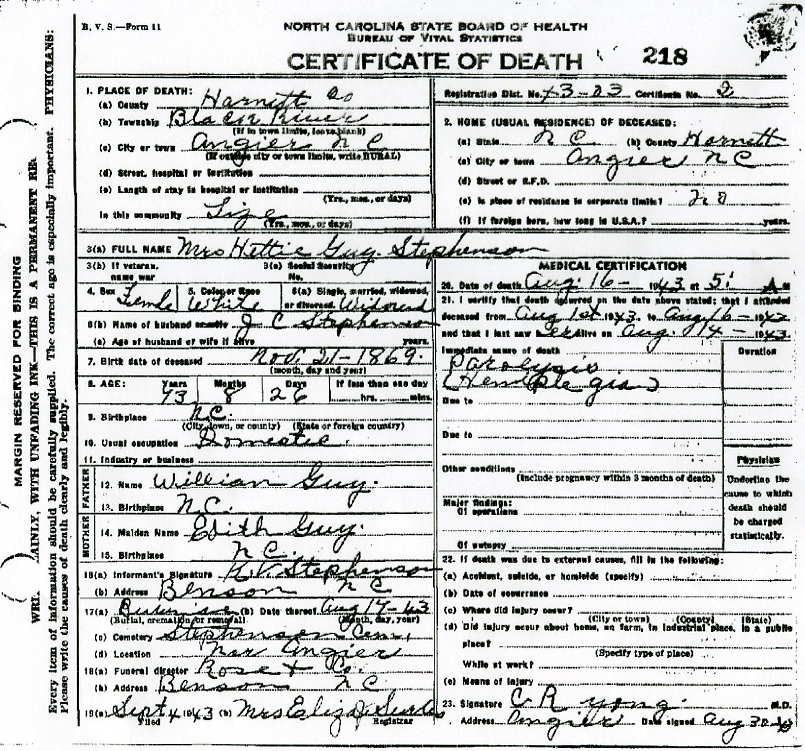 B. V. S.—Form 11
NORTH CAROLINA STATE BOARD OF HEALTH
BUREAU OF VITAL STATISTICS
CERTIFICATE OF DEATH 218
MARGIN RESERVED FOR BINDING
AINLY, WITH UNFADING INK—THIS IS A PERMANENT RE
Every item of information should be carefully supplied. The correct age is especially important. PHYSICIANS:
Please write the causes of death clearly and legibly.
1. PLACE OF DEATH:
(a) County Harnett Co
(b) Township Black River
(If in town limits, leave blank)
(c) City or town Angier N C
(If outside city or town limits, write RURAL)
(d) Street, hospital or institution
(e) Length of stay in hospital or institution
(Yrs., mos., or days)
In this community Life
(Yrs., mos., or days)
Registration Dist. No. 43-23 Certificate No. 2
2. HOME (USUAL RESIDENCE) OF DECEASED:
(a) State N C (b) County Harnett
(c) City or town Angier N C
(d) Street or R.F.D.
(e) Is place of residence in corporate limits? no
(f) If foreign born, how long in U.S.A.? years.
3(a) FULL NAME Mrs Hettie Guy Stephenson
3(b) If veteran, name war
3(c) Social Security No.
4. Sex Female 5. Color or Race White 6(a) Single, married, widowed, or divorced. Widowed
6(b) Name of husband J C Stephenson
(c) Age of husband or wife if alive years.
7. Birth date of deceased Nov. 21-1869.
(month, day and year)
8. AGE: Years 73 Months 8 Days 26 If less than one day hrs. mins.
9. Birthplace N.C.
(City, town, or county) (State or foreign country)
10. Usual occupation Domestic
11. Industry or business
FATHER
12. Name William Guy.
13. Birthplace N.C.
MOTHER
14. Maiden Name Edith Guy
15. Birthplace N C.
16(a) Informant's Signature K V Stephenson
(b) Address Benson N C
17(a) (b) Date thereof Aug 17-43
(Burial, cremation or removal) (Month, day, year)
(c) Cemetery Stephenson Cem.
(d) Location Near Angier
18(a) Funeral director Rose & Co.
(b) Address Benson N C
19(a) Sept 4 1943 (b) Mrs Eliza J
Filed Registrar
MEDICAL CERTIFICATION
20. Date of death Aug 16- 1943 at 5: A M
21. I certify that death occurred on the date above stated; that I attended
deceased from Aug 1st 1943, to Aug 16- 1943
and that I last saw alive on Aug 14- 1943
Immediate cause of death Duration
Paralysis
(Hemiplegia)
Due to
Due to
Other conditions
(Include pregnancy within 3 months of death)
Major findings:
Of operations
Of autopsy
Physician
Underline the
cause to which
death should
be charged
statistically.
22. If death was due to external causes, fill in the following:
(a) Accident, suicide, or homicide (specify)
(b) Date of occurrence
(c) Where did injury occur?
(City or town) (County) (State)
(d) Did injury occur about home, on farm, in industrial place, in a public
place?
(Specify type of place)
While at work?
(e) Means of injury
23. Signature C R Young. M.D.
Address Angier Date signed Aug 30